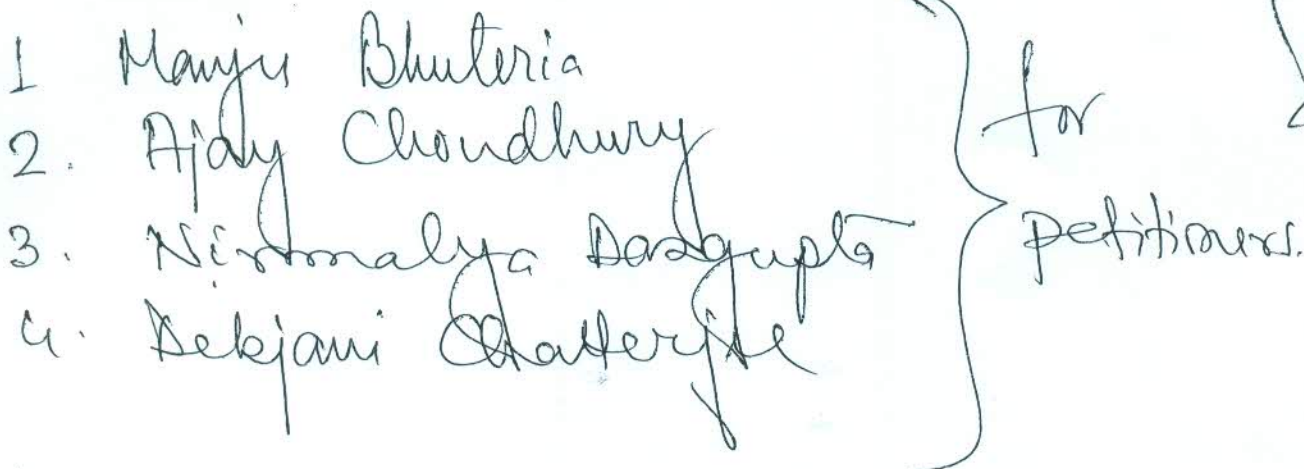 1 Manju Bhuteria
2. Ajay Choudhury
3. Nirmalya Dasgupta
4. Debjani Chatterjee
for
petitioners.